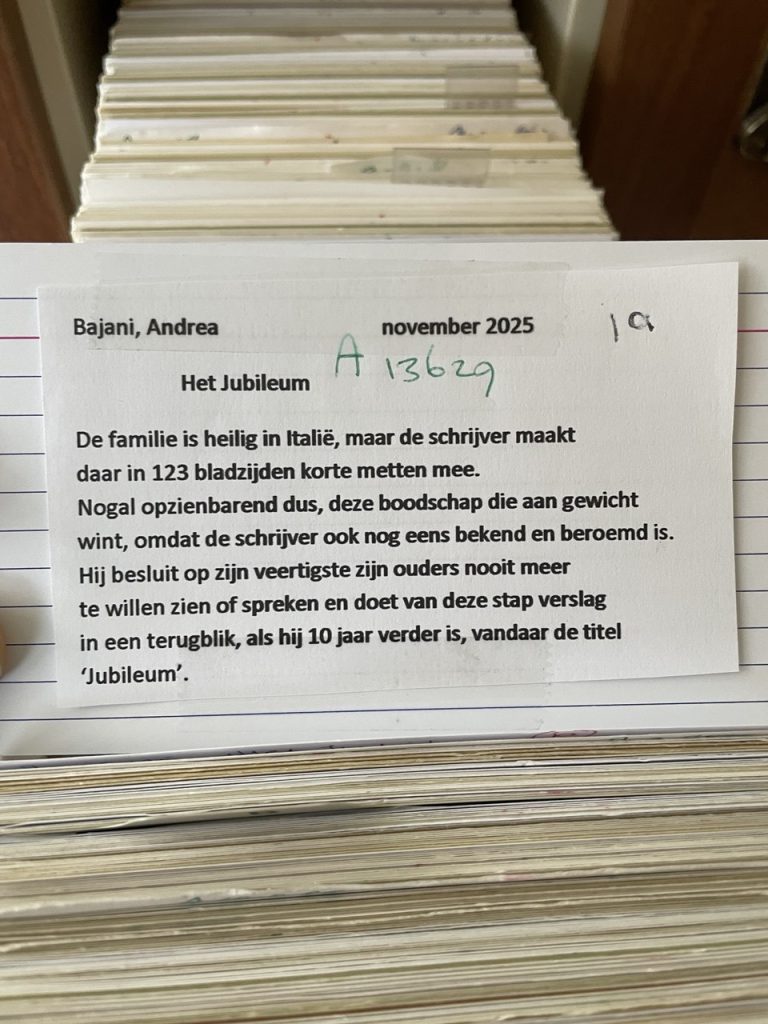 Bajani, Andrea november 2025 19
Het Jubileum A 13629
De familie is heilig in Italië, maar de schrijver maakt
daar in 123 bladzijden korte metten mee.
Nogal opzienbarend dus, deze boodschap die aan gewicht
wint, omdat de schrijver ook nog eens bekend en beroemd is.
Hij besluit op zijn veertigste zijn ouders nooit meer
te willen zien of spreken en doet van deze stap verslag
in een terugblik, als hij 10 jaar verder is, vandaar de titel
‘Jubileum’.